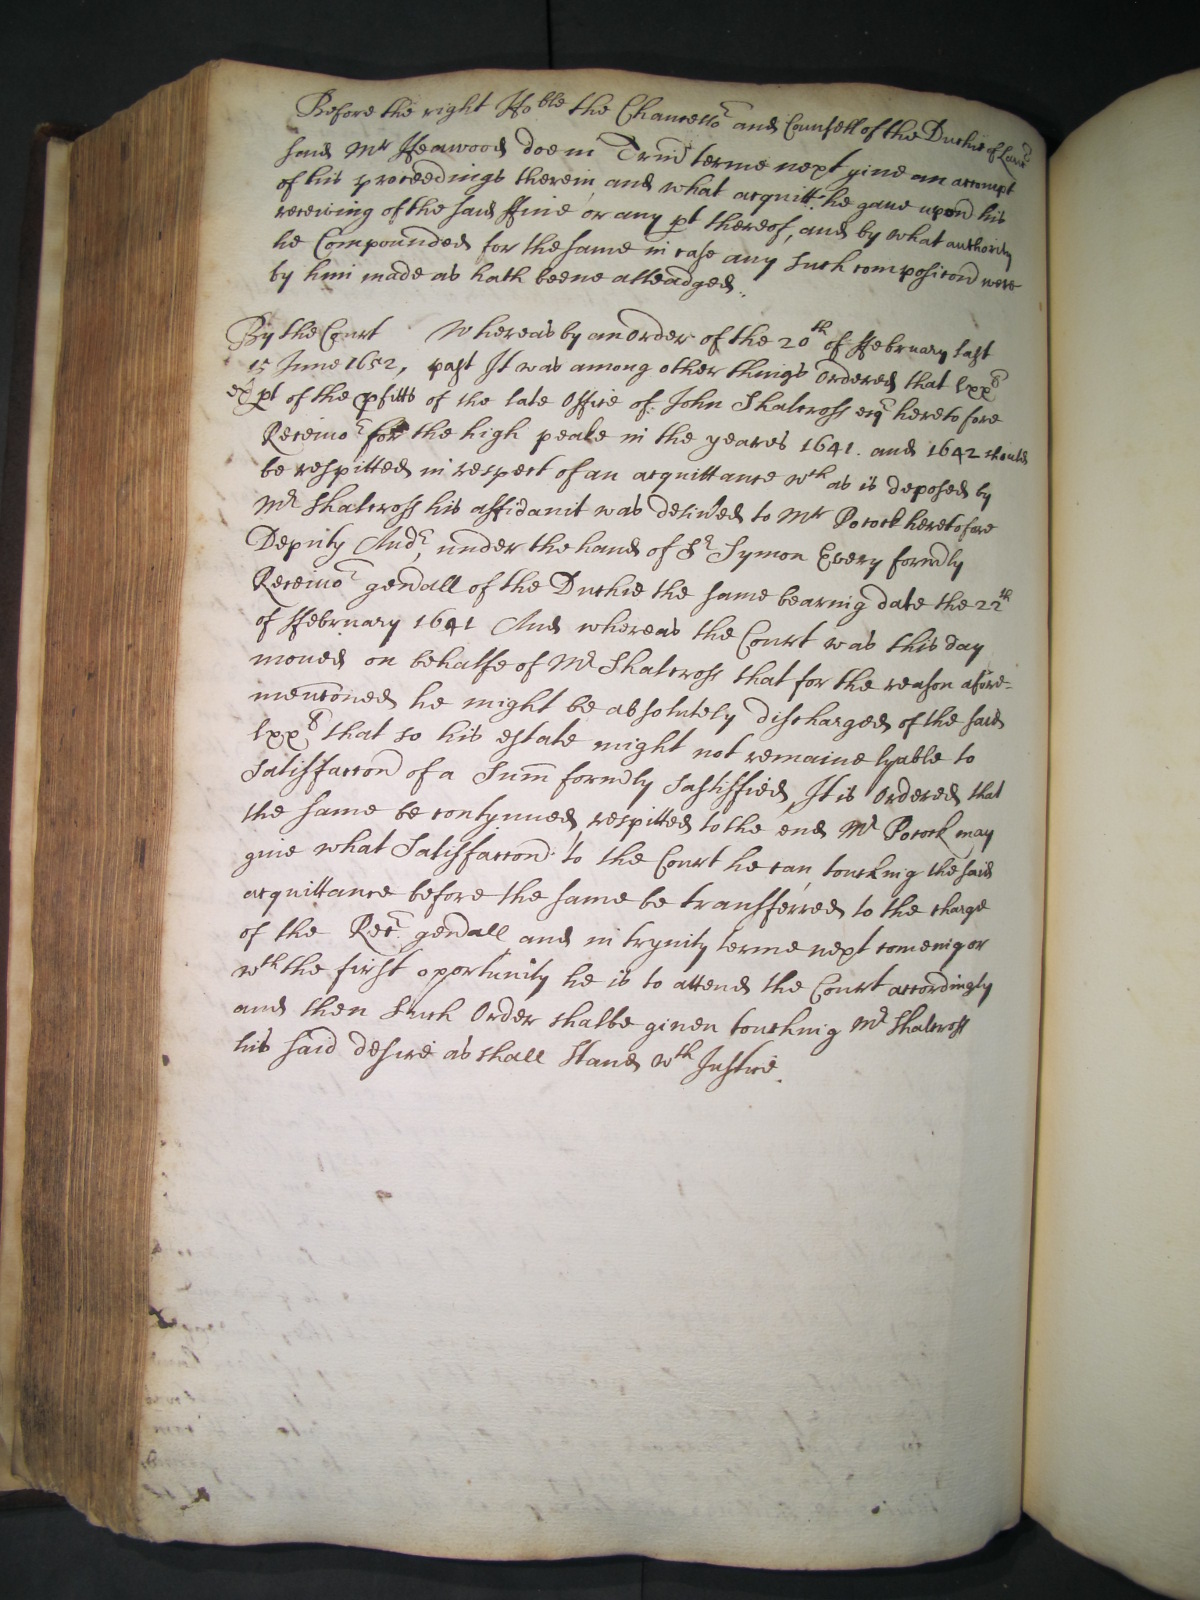 Before the right Hoble the Chancellor and Counsell of the Duchie of Lancr
said Mr Heawood doe in Trin terme next give an accompt
of his proceedings therein and what acquitt: he gave upon his
receiving of the said ffine or any pt thereof, and by what authority
he Compounded for the same in case any such composicon were
by him made as hath beene alleadged.
By the Court Whereas by an Order of the 20th of ffebruary last
15 June 1652, past It was among other things Ordered that lxxs
pt of the pfitts of the late Office of John Shalcross esqr heretofore
Receivor for the high peake in the yeares 1641. and 1642 should
be respitted in respect of an acquittance wch as is deposed by
Mr Shalcross his affidavit was delived to Mr Pocock heretofore
Deputy Audr, under the hand of Sr Symon Every formly
Receivor genall of the Duchie the same bearing date the 22th
of ffebruary 1641 And whereas the Court was this day
moved on behalfe of Mr Shalcross that for the reason afore=
mencioned he might be absolutely discharged of the said
lxxs that so his estate might not remaine lyable to
Satisfaccon of a Summ formly sastisfied, It is Ordered that
the same be contynued respitted to the end Mr Pocock may
give what Satisfaccon to the Court he can touching the said
acquittance before the same be transferred to the charge
of the Recr. genall and in trynity terme next comeing or
wth the first oportunity he is to attend the Court accordingly
and then Such Order shalbe given touching Mr Shalcross
his said desire as shall Stand wth Justice.